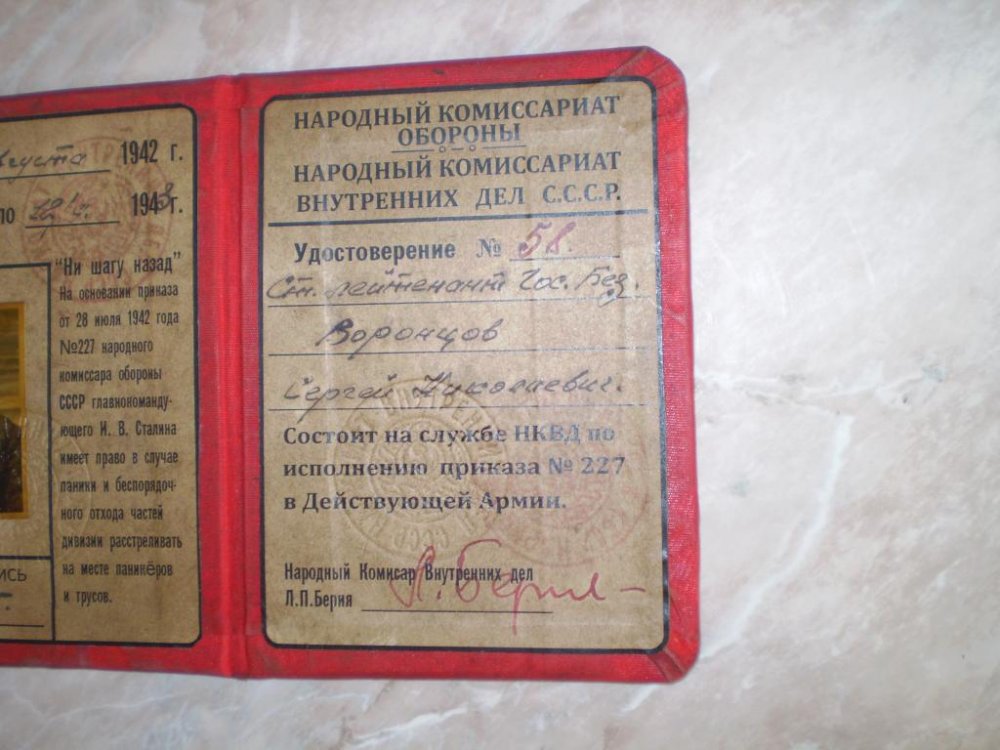 августа 1942 г.
по 1943 г.
"Ни шагу назад"
На основании приказа
от 28 июля 1942 года
№227 народного
комиссара обороны
СССР главнокоманду-
ющего И. В. Сталина
имеет право в случае
паники и беспорядоч-
ного отхода частей
дивизии расстреливать
на месте паникёров
и трусов.
ись
НАРОДНЫЙ КОМИССАРИАТ
ОБОРОНЫ
НАРОДНЫЙ КОМИССАРИАТ
ВНУТРЕННИХ ДЕЛ С.С.С.Р.
Удостоверение № 58.
Ст. лейтенант Гос. Без.
Воронцов
Сергей Николаевич.
Состоит на службе НКВД по
исполнению приказа № 227
в Действующей Армии.
Народный Комисар Внутренних дел
Л.П.Берия Л. Берия